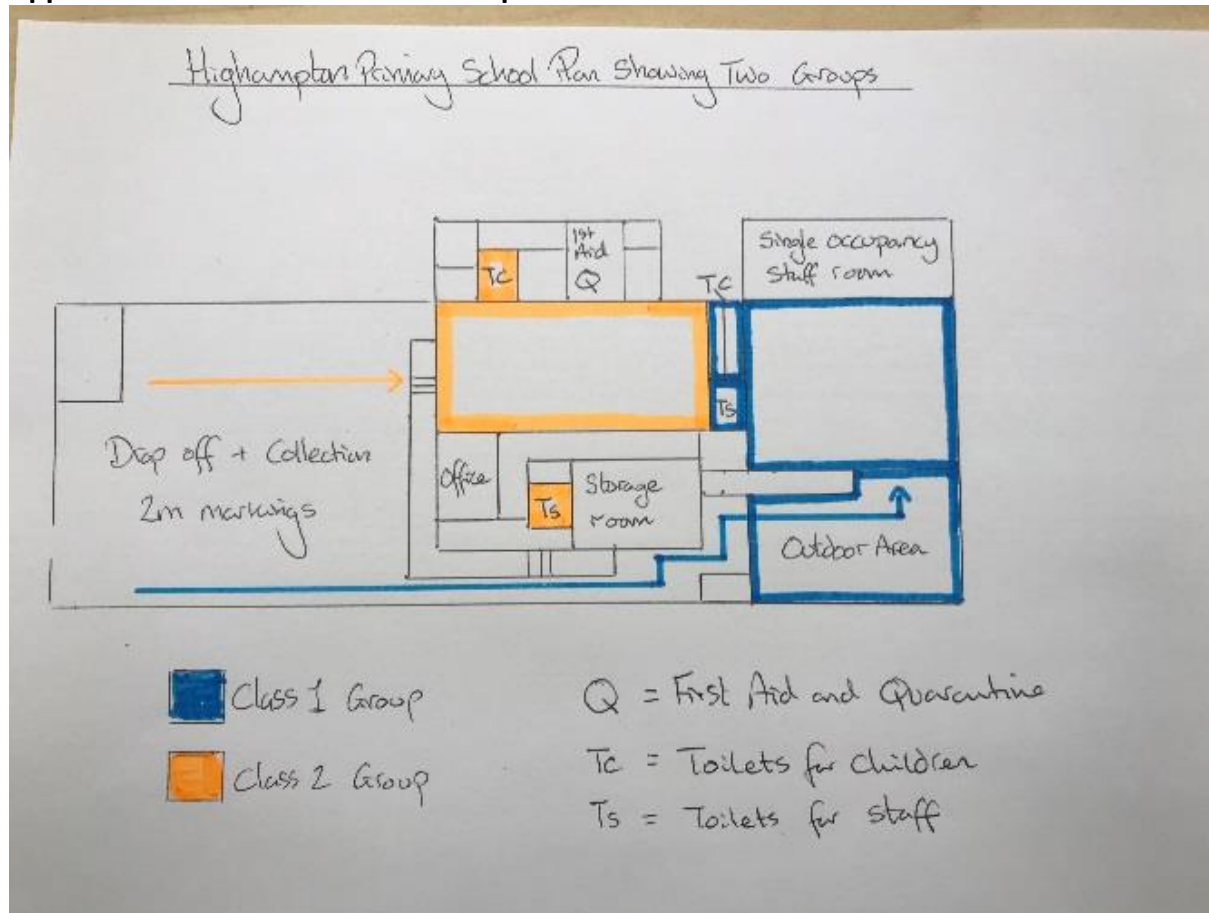 Highampton Primary School Plan Showing Two Groups
1st
Aid
Q
Tc
Tc
Single occupancy
Staff room
Ts
Drop off + Collection
2m markings
Office
Ts
Storage
room
Outdoor Area
Class 1 Group
Class 2 Group
Q = First Aid and Quarantine
Tc = Toilets for children
Ts = Toilets for staff